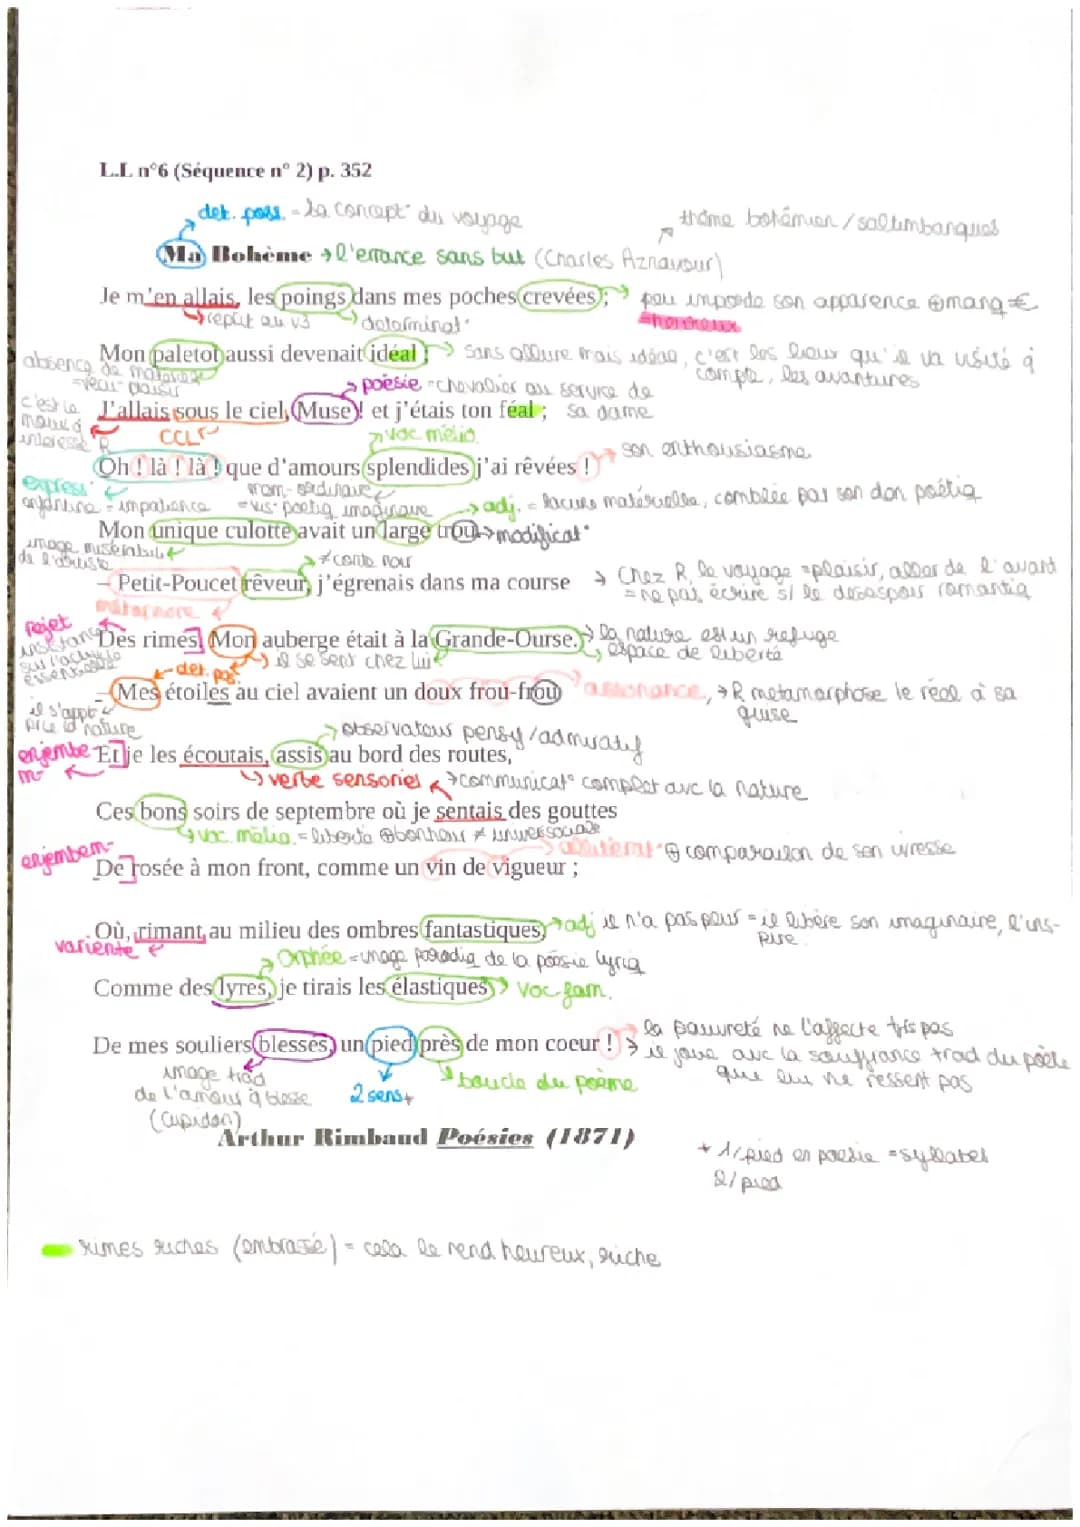 L.L n°6 (Séquence n° 2) p. 352
det. poss. = la concept° du voyage
thème bohémien / saltimbanques
Ma Bohème → l'errance sans but (Charles Aznavour)
Je m'en allais, les poings dans mes poches crevées ; → peu importe son apparence ⊕ manq €
→ répét au v3 → déterminat° = heureux
Mon paletot aussi devenait idéal ; → sans allure mais idéal, c'est les lieux qu'il va visité q
absence de matériel compte, les avantures
= réel plaisir → poésie = chevalier au service de
J'allais sous le ciel, Muse ! et j'étais ton féal ; sa dame
c'est le
CCL → voc mélio.
Oh ! là ! là ! que d'amours splendides j'ai rêvées ! → son enthousiasme
express°
enfantine = impatience = vis° poétiq imaginaire → adj. = lacune matérielle, comblée par son don poétiq
Mon unique culotte avait un large trou. → modificat°
image misérabili
de l'artiste → ≠ conte noir
– Petit-Poucet rêveur, j'égrenais dans ma course → Chez R, le voyage = plaisir, aller de l'avant
= ne pas écrire s/ le desespoir romantiq
métaphore
rejet
Des rimes. Mon auberge était à la Grande-Ourse. → la nature est un refuge
sur l'activité
essentielle → il se sent chez lui → espace de liberté
det. pos.
– Mes étoiles au ciel avaient un doux frou-frou assonance, → R metamorphose le réel à sa
guise
la nature → observateur pensif / admiratif
enjembe
m- Et je les écoutais, assis au bord des routes,
→ verbe sensoriel → communicat° complet avc la nature
Ces bons soirs de septembre où je sentais des gouttes
voc. mélio. = liberté ⊕ bonheur ≠
enjembem-
De rosée à mon front, comme un vin de vigueur ; allitérat° ⊕ comparaison de son ivresse
Où, rimant au milieu des ombres fantastiques, → adj il n'a pas peur = il libère son imaginaire, l'ins-
pire.
variente
→ Orphée = image paradig de la poésie lyriq
Comme des lyres, je tirais les élastiques → voc fam.
De mes souliers blessés, un pied près de mon coeur ! → la pauvreté ne l'affecte tjs pas
→ il joue avc la souffrance trad du poète
que lui ne ressent pas
image trad
de l'amour q blesse
(Cupidon)
2 sens *
→ boucle du poème
Arthur Rimbaud Poésies (1871)
* 1/ pied en poésie = syllabes
2/ pied
rimes riches (embrassé) = cela le rend heureux, riche